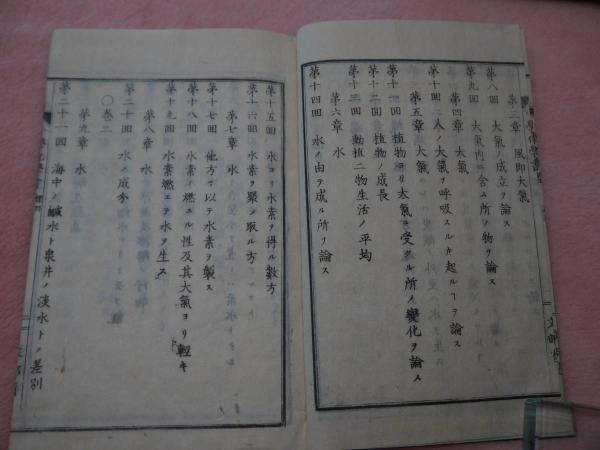 第三章 風即大氣
第八回 大氣ノ成立ヲ論ス
第九回 大氣内ニ含ム所ノ物ヲ論ス
第四章 大氣
第十回 人ノ大氣ヲ呼吸スルキ起ルヿヲ論ス
第五章 大氣
第十一回 植物ヨリ大氣ニ受クル所ノ變化ヲ論ス
第十二回 植物ノ成長
第十三回 動植二物生活ノ平均
第六章 水
第十四回 水ノ由テ成ル所ヲ論ス
第十五回 水ヨリ水素ヲ得ル數方
第十六回 水素ヲ聚メ取ル方
第七章 水
第十七回 他方ヲ以テ水素ヲ製ス
第十八回 水素ノ燃ユル性及其大氣ヨリ輕キ
第十九回 水素燃エテ水ヲ生ス
第八章 水
第二十回 水ノ成分
〇卷二
第九章 水
第二十一回 海中ノ鹹水ト泉井ノ淡水トノ差別